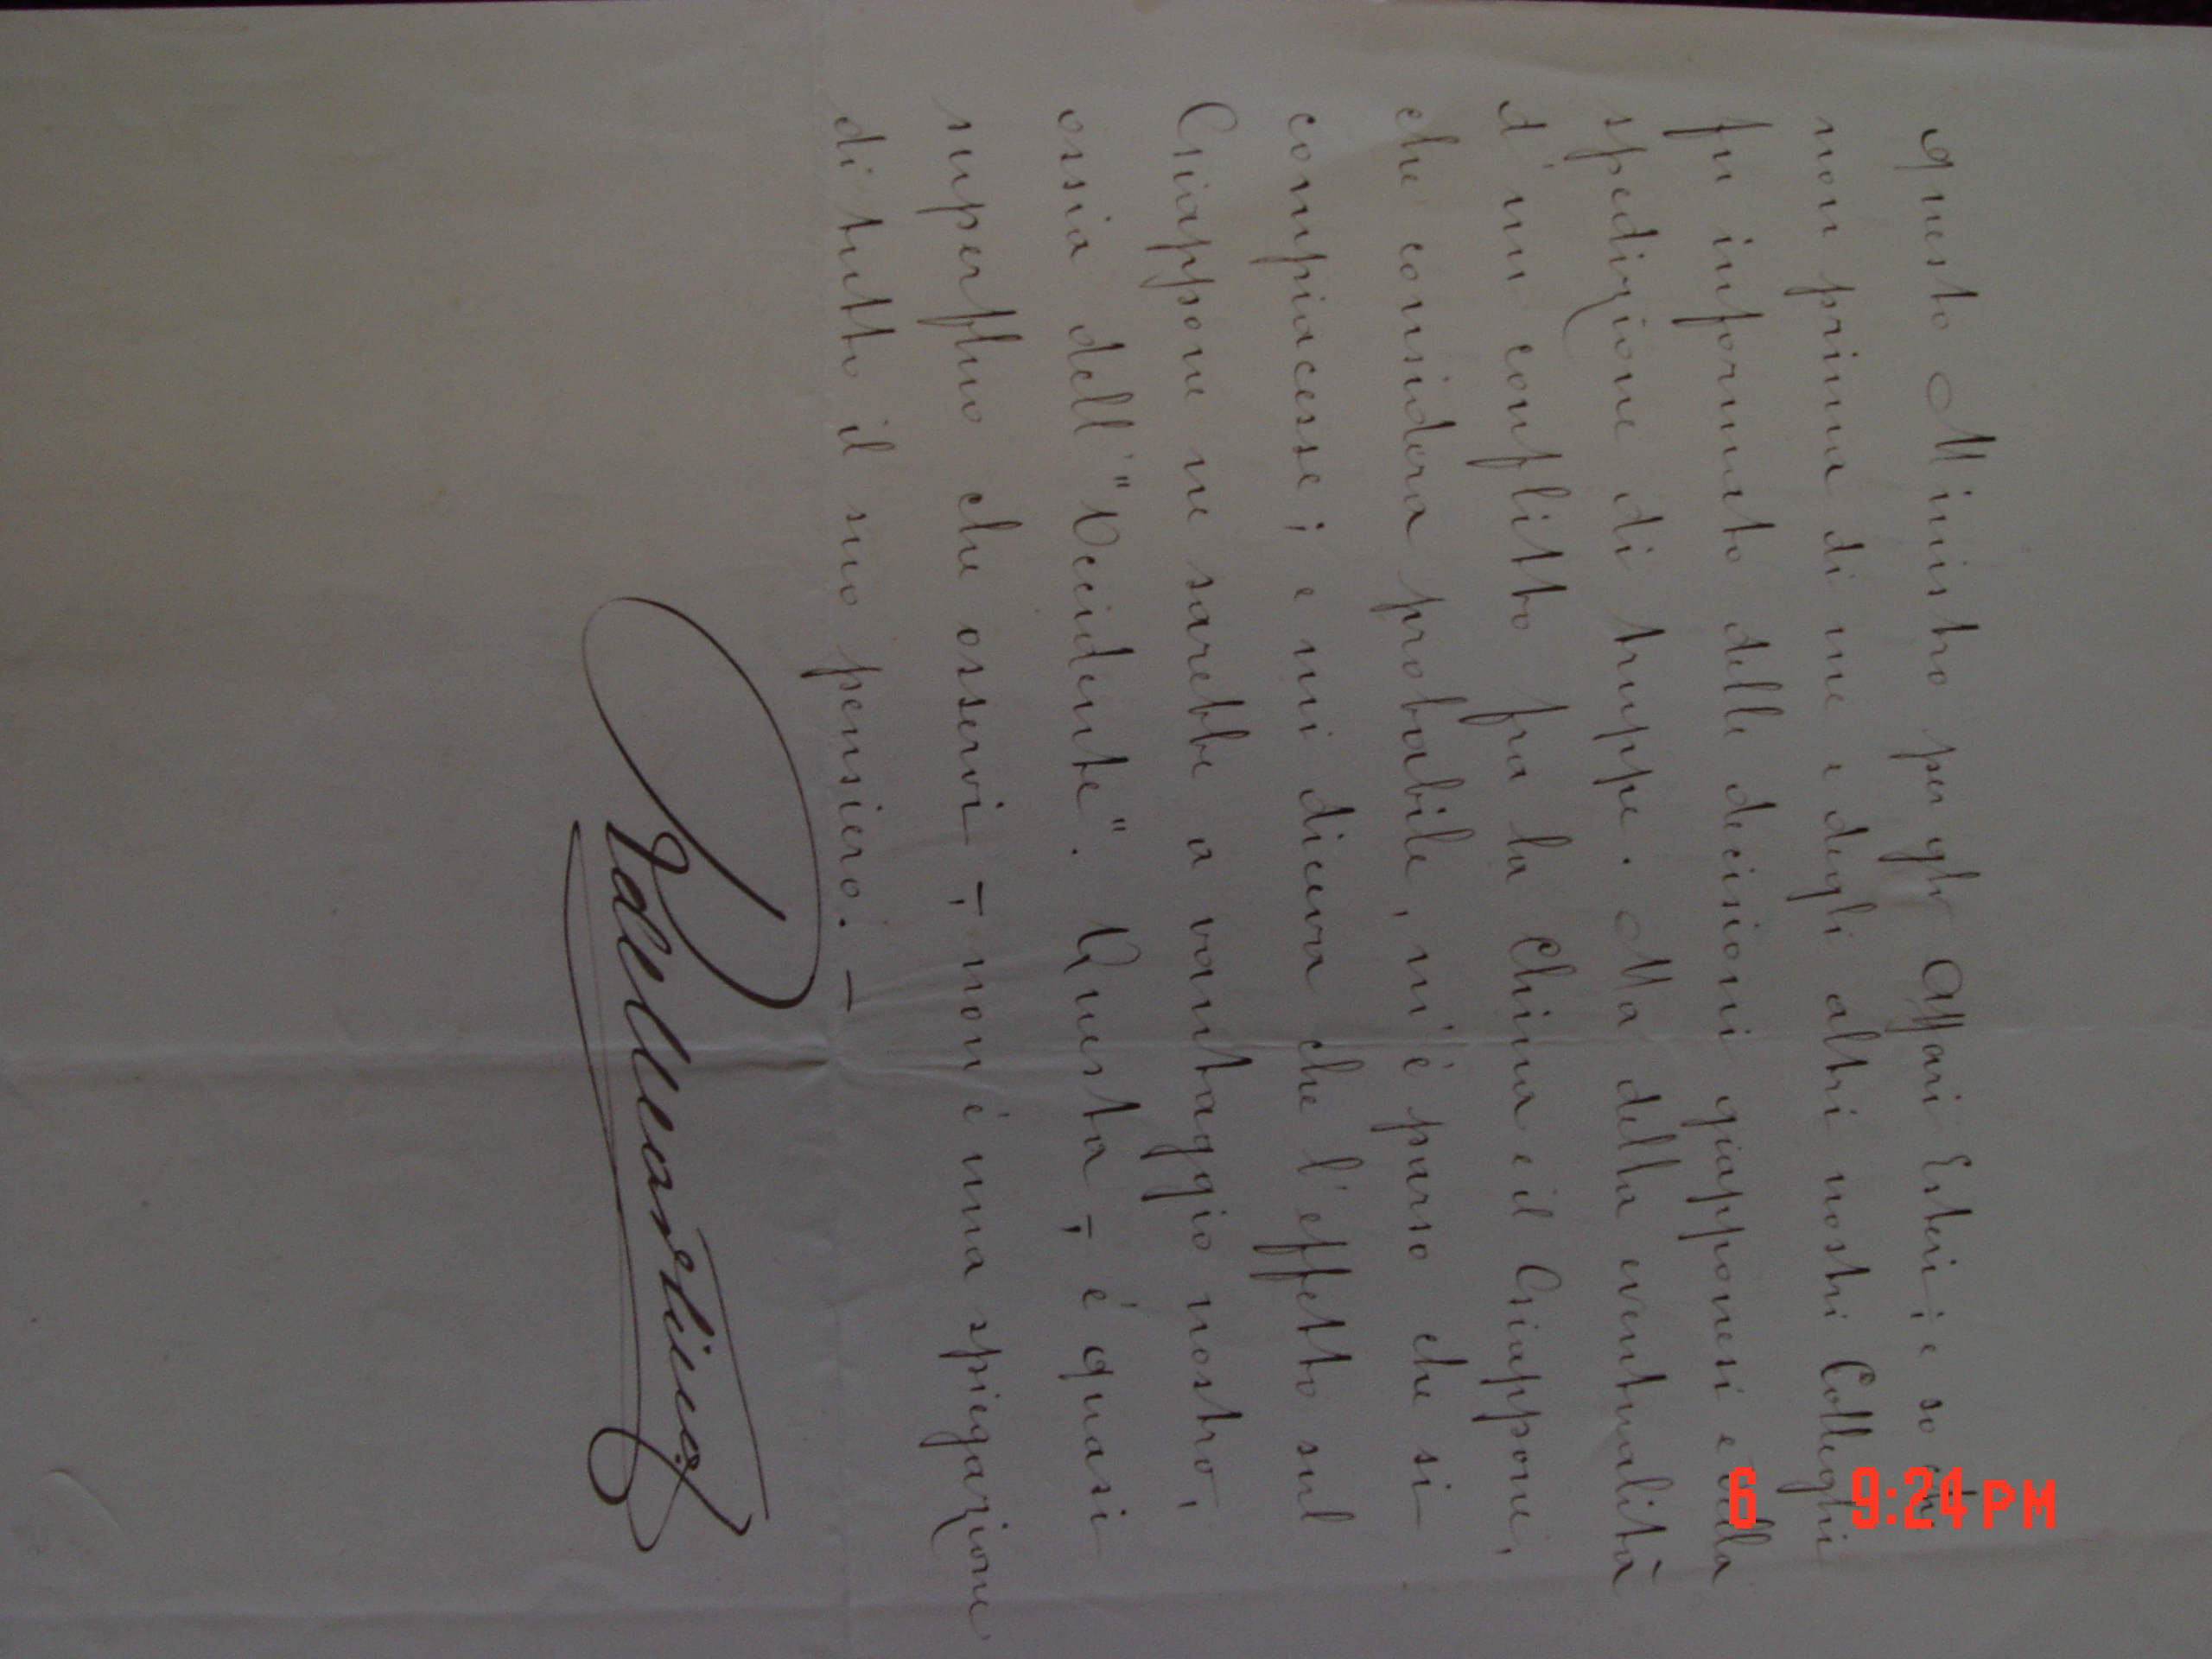 questo Ministro per gli Affari Esteri; e so che
non prima di me e degli altri nostri Colleghi
fu informato delle decisioni giapponesi e della
spedizione di truppe. Ma della eventualità
d'un conflitto fra la China e il Giappone,
che considera probabile, m'è parso che si
compiacesse; e mi diceva che l'effetto sul
Giappone ne sarebbe a vantaggio nostro,
ossia dell'"Occidente". Questa -, è quasi
superfluo che osservi -, non è una spiegazione
di tutto il suo pensiero. -
6 9:24 PM